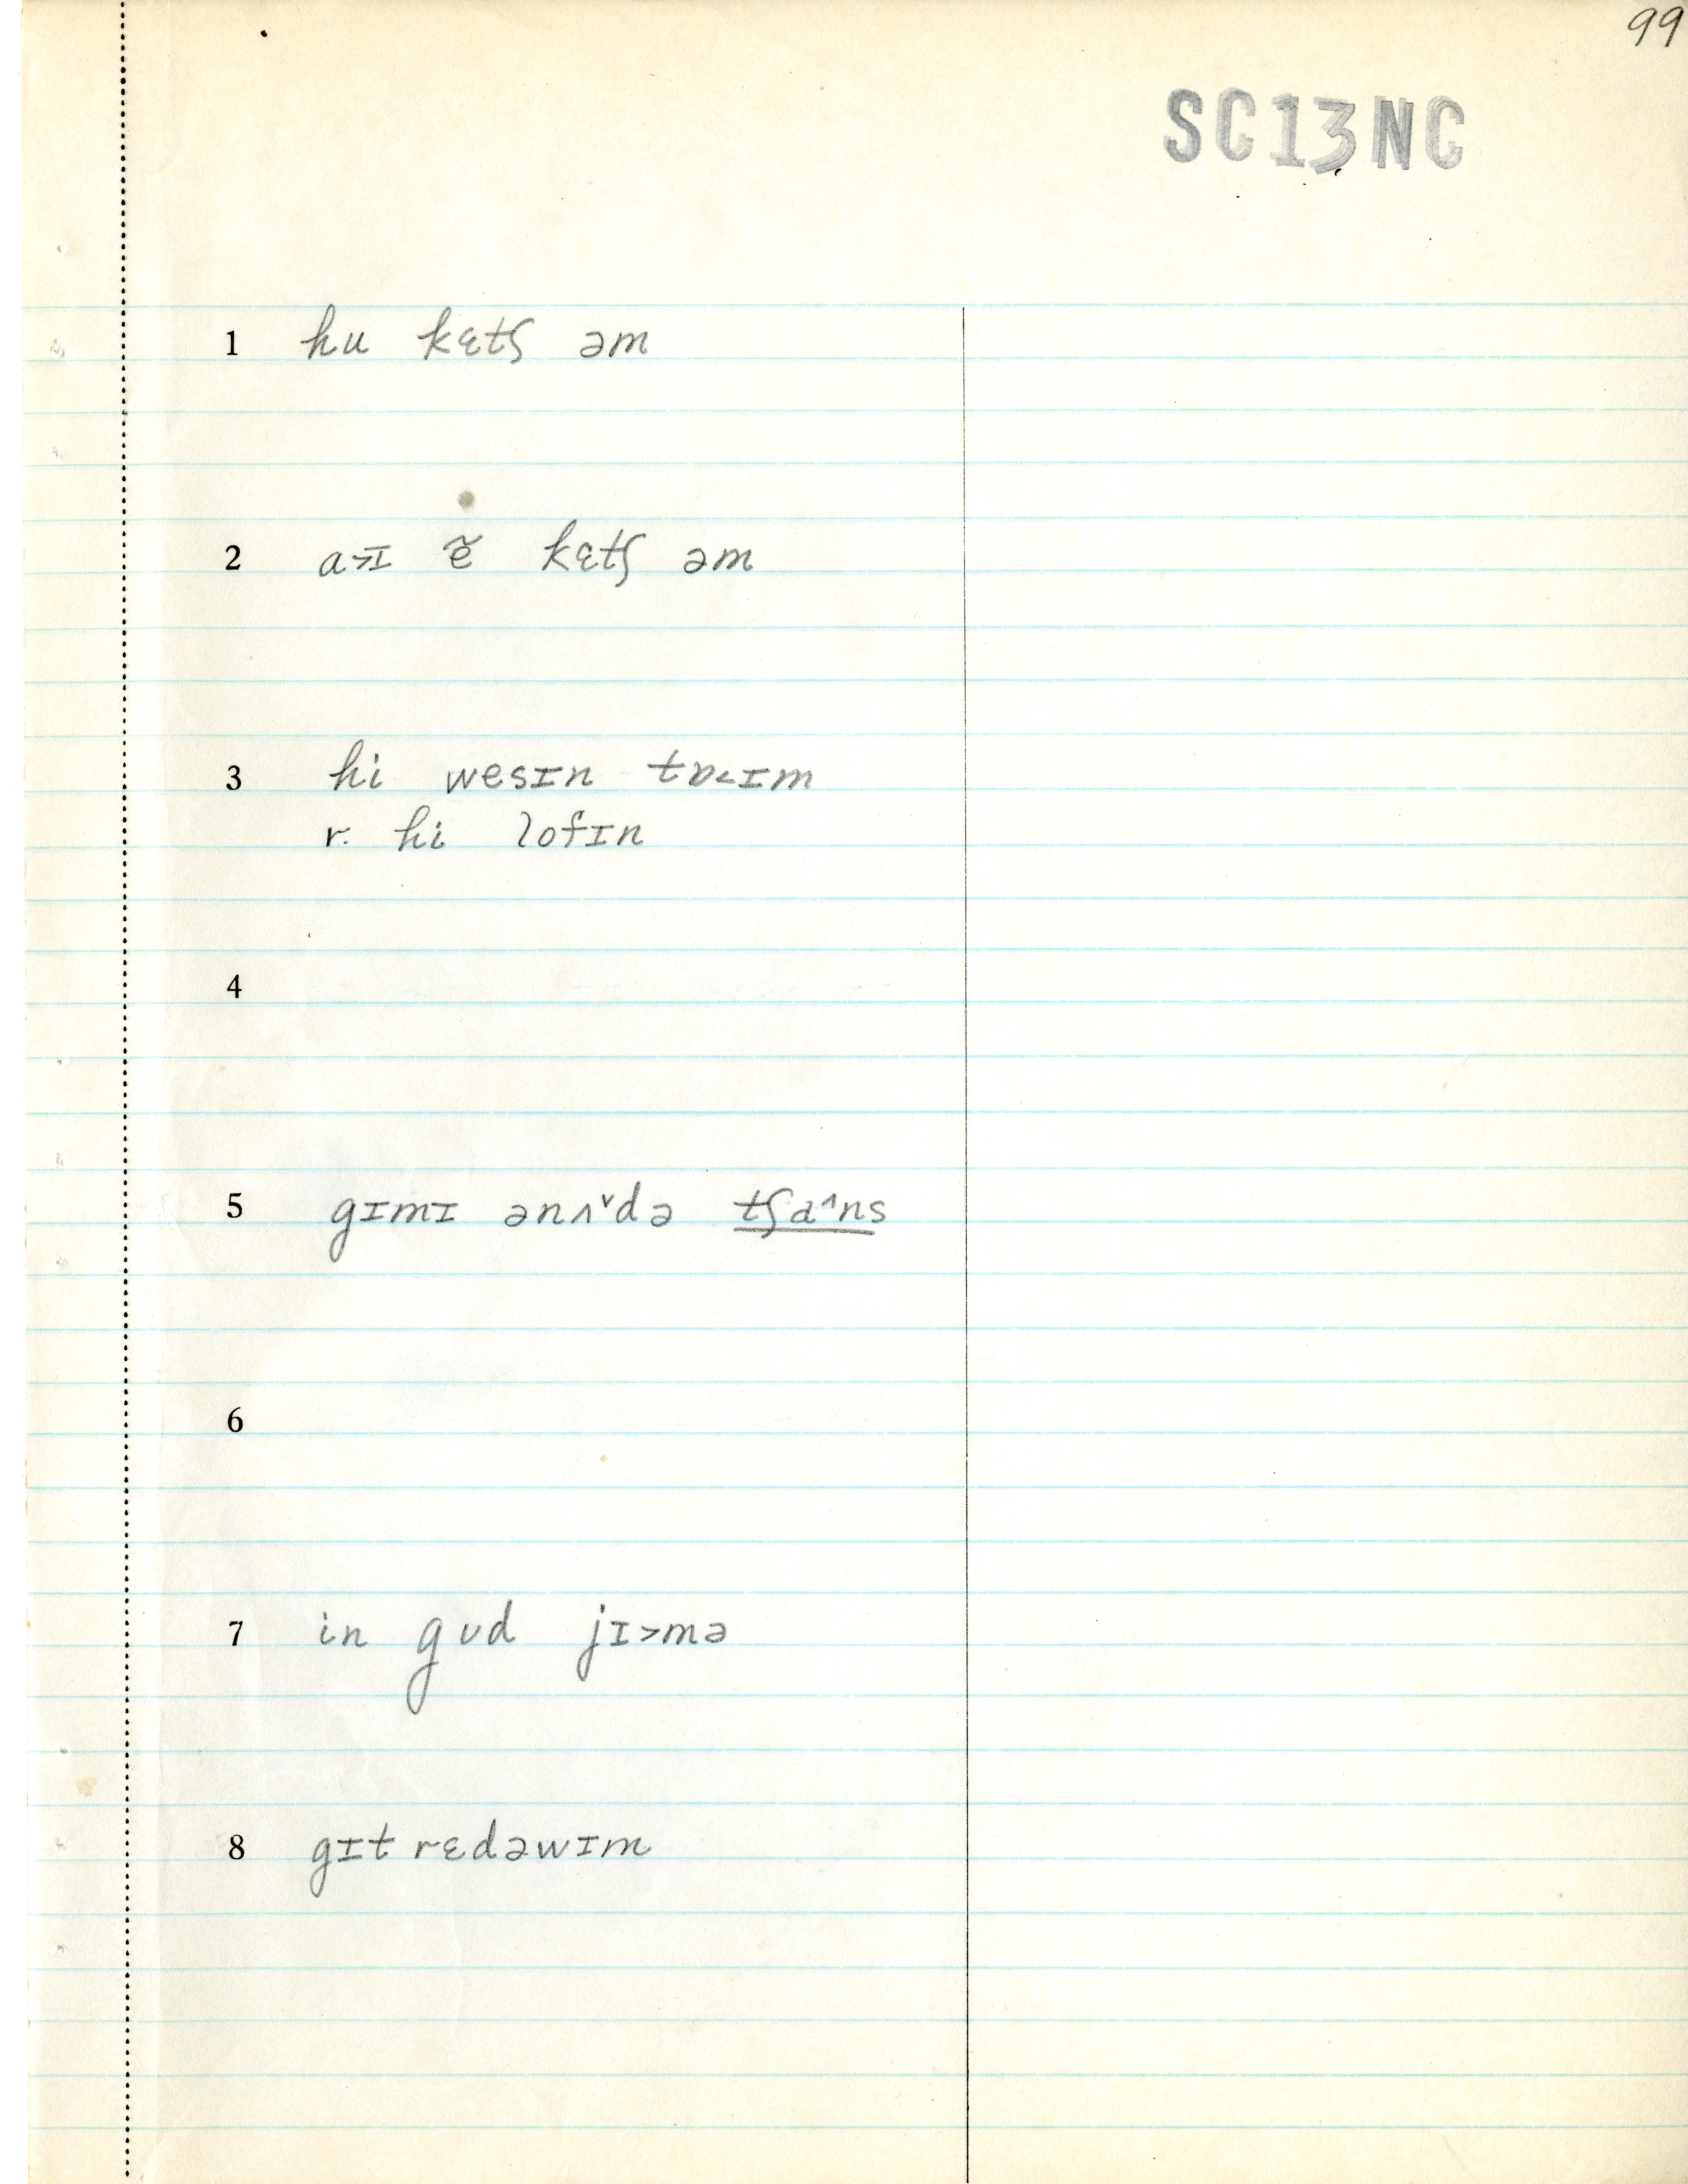 99
SC13NC
1 hu kɛtʃ əm
2 a>ɪ ẽ kɛtʃ əm
3 hi wesɪn tɒ<ɪm
r. hi lofɪn
4
5 gɪmɪ ənʌ˅də tʃɑ˄ns
6
7 in gʊd jɪ>mə
8 gɪt rɛdəwɪm